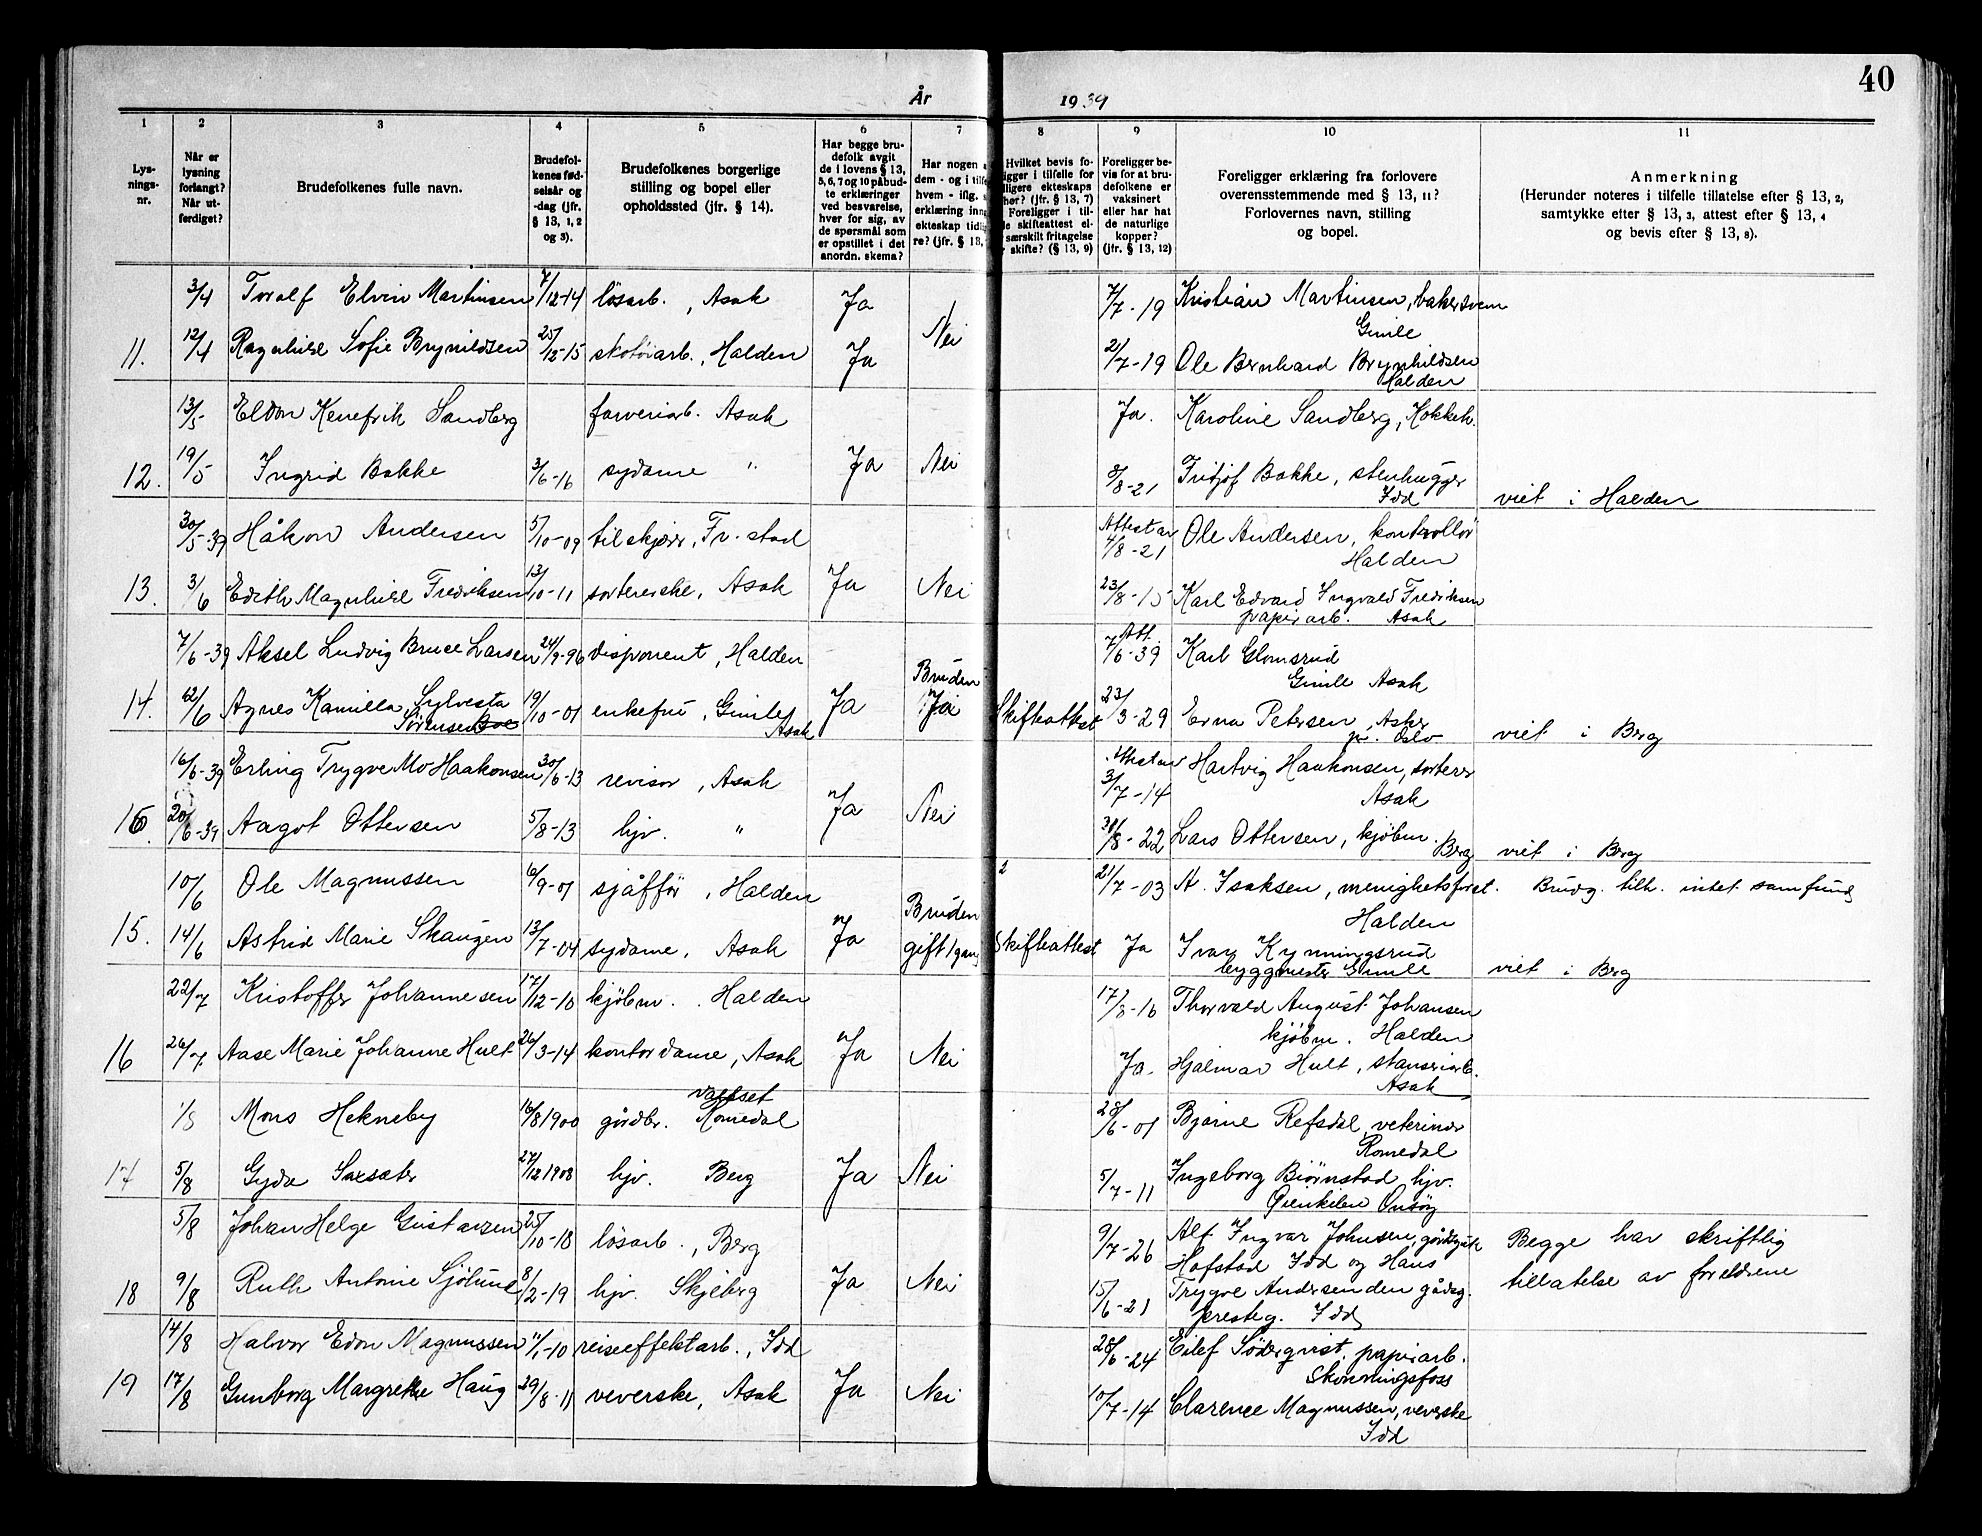 40
År 1939
1 2 3 4 5 6 7 8 9 10 11
Lys-
nings-
nr.
Når er
lysning
forlangt?
Når ut-
ferdiget?
Brudefolkenes fulle navn.
Brudefol-
kenes fød-
selsår og
-dag (jfr.
§ 13, 1, 2
og 3).
Brudefolkenes borgerlige
stilling og bopel eller
opholdssted (jfr. § 14).
Har begge bru-
defolk avgit
de i lovens § 13,
5, 6, 7 og 10 påbud-
te erklæringer
ved besvarelse,
hver for sig, av
de spørsmål som
er opstillet i det
anordn. skema?
Har nogen a
dem - og i tilfe
hvem - iflg. s
erklæring inng
ekteskap tidli
re? (jfr. § 13,
Hvilket bevis fo-
ligger i tilfelle for
ligere ekteskaps
hør? (jfr. § 13, 7)
Foreligger i til-
le skifteattest el-
særskilt fritagelse
skifte? (§ 13, 9)
Foreligger be-
vis for at bru-
defolkene er
vaksinert
eller har hat
de naturlige
kopper?
(jfr. § 13, 12)
Foreligger erklæring fra forlovere
overensstemmende med § 13, 11?
Forlovernes navn, stilling
og bopel.
Anmerkning
(Herunder noteres i tilfelle tillatelse efter § 13, 2,
samtykke efter § 13, 3, attest efter § 13, 4
og bevis efter § 13, 8).
3/4 Toralf Elvin Martinsen 7/12-14 løsarb., Asak Ja 7/7-19 Kristian Martinsen, bakersvenn
Gimle
11. 12/4 Ragnhild Sofie Brynildsen 25/12-15 skotøiarb., Halden Ja Nei 21/7-19 Ole Bernhard Brynhildsen
Halden
13/5 Eldon Kenefrik Sandberg farveriarb. Asak Ja. Karoline Sandberg, Kokkeh.
12. 19/5 Ingrid Bakke 3/6-16 sydame " Ja Nei 8/8-21 Fritjof Bakke, stenhugger
Idd viet i Halden
30/5-39 Håkon Andersen 5/10-09 tilskjær, Fr.stad Attest av 4/8-21 Ole Andersen, kontrollør
Halden
13. 3/6 Edith Magnhild Fredriksen 13/10-11 sortererske, Asak Ja Nei 23/8-15 Karl Edvard Ingvald Fredriksen
papirarb. Asak
7/6-39 Aksel Ludvig Bruce Larsen 24/9-96 disponent, Halden Att. 7/6-39 Karl Glomsrud
Gimle Asak
14. 12/6 Agnes Kamilla Sylvesta
Sørensen 19/10-01 enkefru, Gimle
Asak Ja Bruden
Ja Skifteattest 23/3-29 Erna Petersen, Asker
pr. Oslo viet i Berg
16/6-39 Erling Trygve Mo Haakonsen 30/6-13 revisor, Asak Attest av 3/7-14 Hartvig Haakonsen, sorterer
Asak
16. 20/6-39 Aagot Ottersen 5/8-13 hjv. " Ja Nei 31/8-22 Lars Ottersen, kjøbm.
Berg viet i Berg
10/6 Ole Magnussen 6/9-01 sjåffør, Halden 2 21/7-03 A. Isaksen, menighetsforst. Brudg. tilh. intet samfund
Halden
15. 14/6 Astrid Marie Skaugen 13/7-04 sydame, Asak Ja Bruden
gift 1 gang Skifteattest Ja Ivar Kynningsrud
byggmester Gimle viet i Berg
22/7 Kristoffer Johannesen 17/12-10 kjøbm. Halden 17/8-16 Thorvald August Johansen
kjøbm. Halden
16 26/7. Aase Marie Johanne Hult 26/3-14 kontordame, Asak Ja Nei Ja. Hjalmar Hult, stanseriarb.
Asak
1/8 Mons Hekneby 16/8 1900 gårdbr. Romedal
Vallset 28/6-01 Bjarne Refsdal, veterinær
Romedal
17 5/8 Gyda Saxsæter 27/12 1908 hjv. Berg Ja Nei 5/7-11 Ingeborg Bjørnstad hjv.
Onsøy
5/8 Johan Helge Gustavsen 25/10-18 løsarb., Berg 9/7-26 Alf Ingvar Johnsen, Begge har skriftlig
Hofstad Idd og Hans
18 9/8 Ruth Antonie Sjølund 8/2-19 hjv. Skjeberg Ja Nei 15/6-21 Trygve Andersen den tillatelse av foreldrene
presteg. Idd
14/8 Halvor Edon Magnussen 11/1-10 reiseeffektarb., Idd 28/6-24 Eilef Söderqvist, papirarb.
Skonningsfoss
19 17/8 Gunborg Margrethe Haug 29/8-11 veverske, Asak Ja Nei 10/7-14 Clarence Magnussen, veverske
Idd